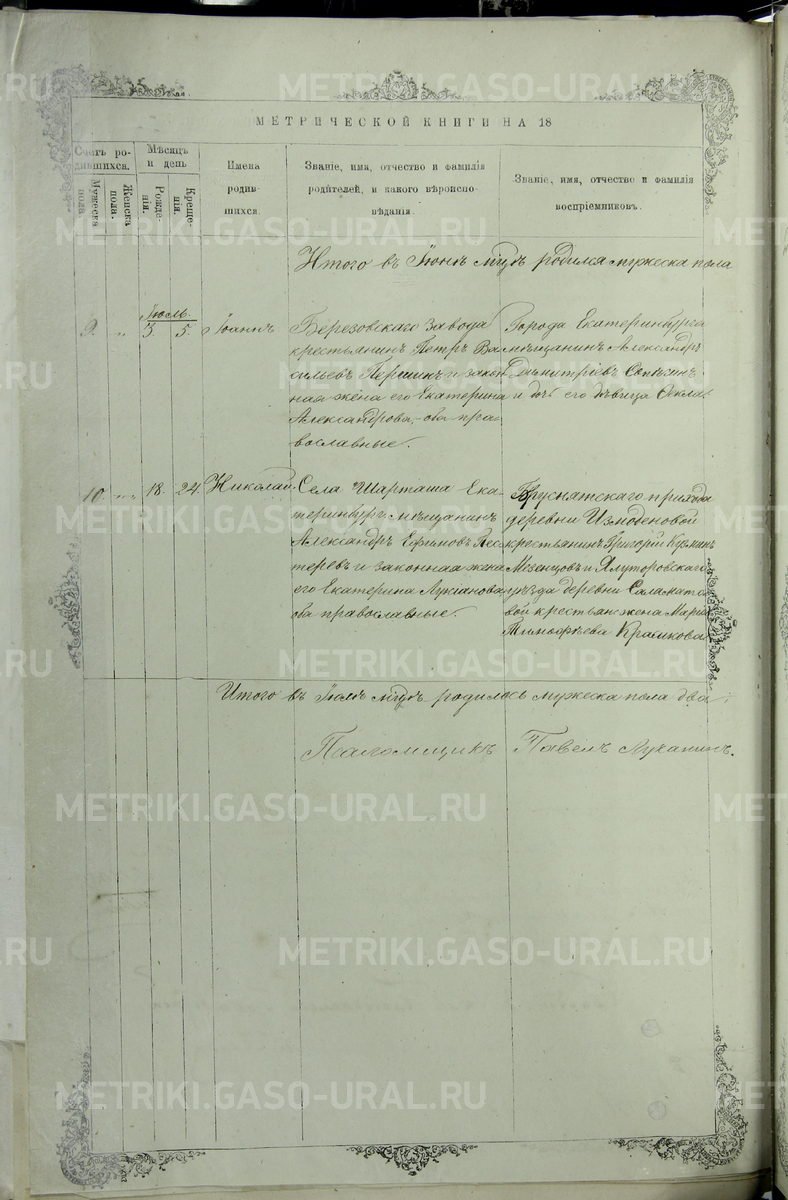 МЕТРИЧЕСКОЙ КНИГИ НА 18
Счетъ родившихся.
Мужеска пола.
Женска пола.
Мѣсяцъ и день
Рожденія.
Крещенія.
Имена родившихся.
Званіе, имя, отчество и фамилія
родителей, и какого вѣроиспо-
вѣданія.
Званіе, имя, отчество и фамилія
воспріемниковъ.
Итого въ Іюнѣ мцѣ родился мужеска пола
Іюль
9. „ 3 5. Іоаннъ
Березовскаго завода
крестьянинъ Петръ Ва-
сильевъ Першинъ и закон-
ная жена его Екатерина
Александрова, оба пра-
вославные.
Города Екатеринбурга
мѣщанинъ Александръ
Димитріевъ
и дочь его дѣвица Ѳекла
10. „ 18. 24. Николай
Села Шарташа Ека-
теринбург. мѣщанинъ
Александръ Ефимовъ Пес-
теревъ и законная жена
его Екатерина Лукіанова
оба православные.
Бруснятскаго прихода
деревни Измоденовой
крестьянинъ Григорій Кузмин
Мезенцовъ и Ялуторовскаго
уѣзда деревни Саламато-
вой крестьян. жена Марія
Тимофѣева Крашкова
Итого въ Іюлѣ мцѣ родилось мужеска пола два
Псаломщикъ Павелъ Луканинъ.
METRIKI.GASO-URAL.RU